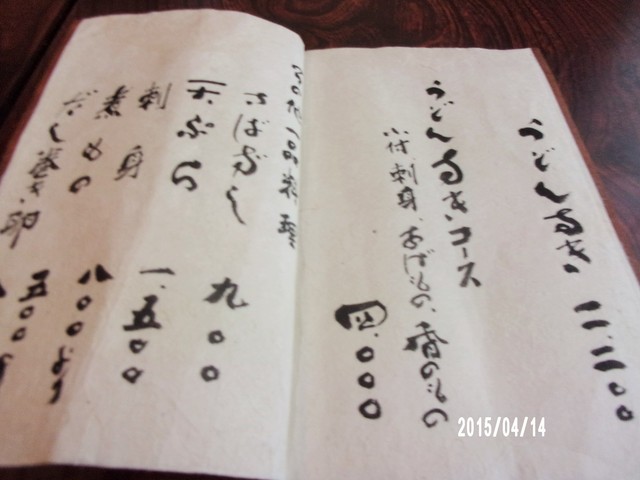 うどんすき 二.二〇〇
うどんすきコース
小付、刺身、あげもの、香のもの
四.〇〇〇
その他一品料理
さばずし 九〇〇
天ぷら 一.五〇〇
刺身 八〇〇より
煮もの 五〇〇
だし巻き卵
2015/04/14